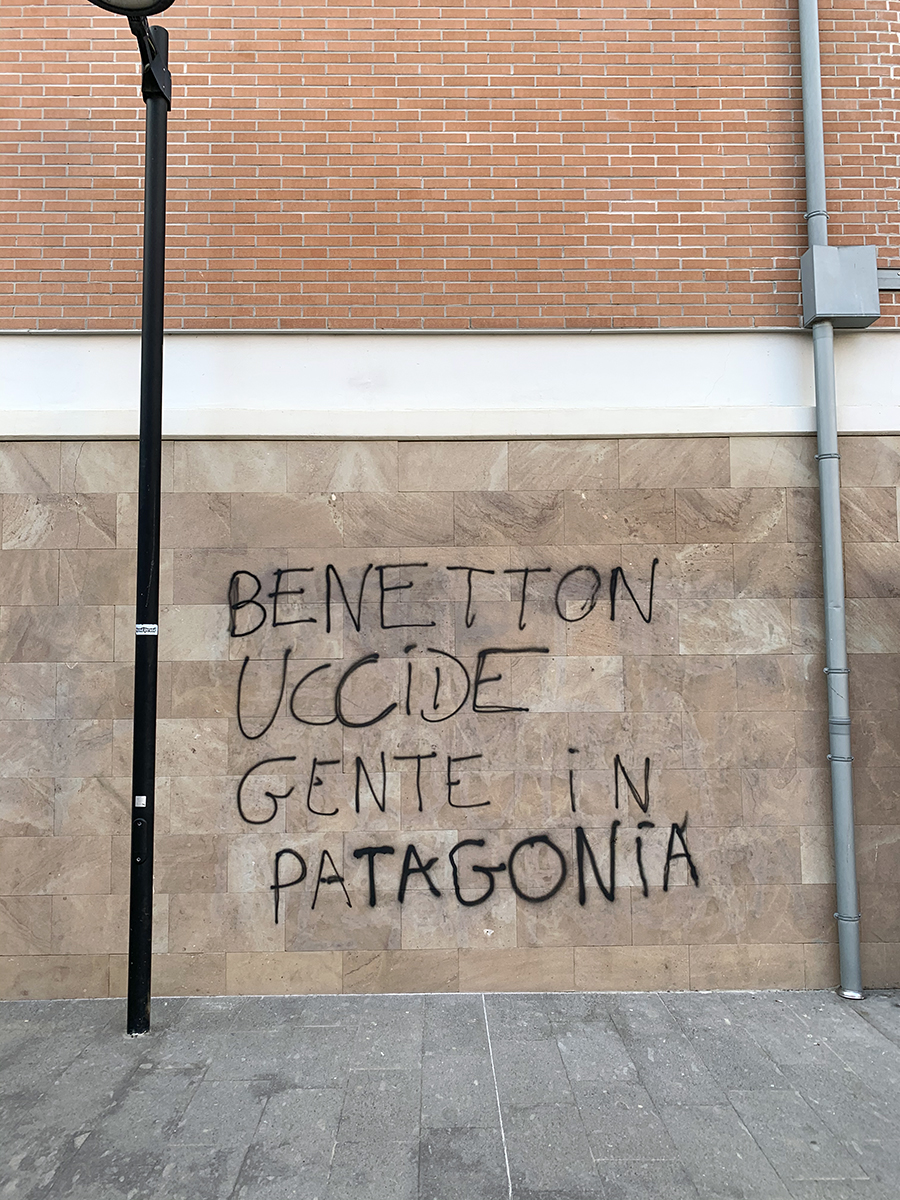 BENETTON
UCCiDE
GENTE iN
PATAGONiA